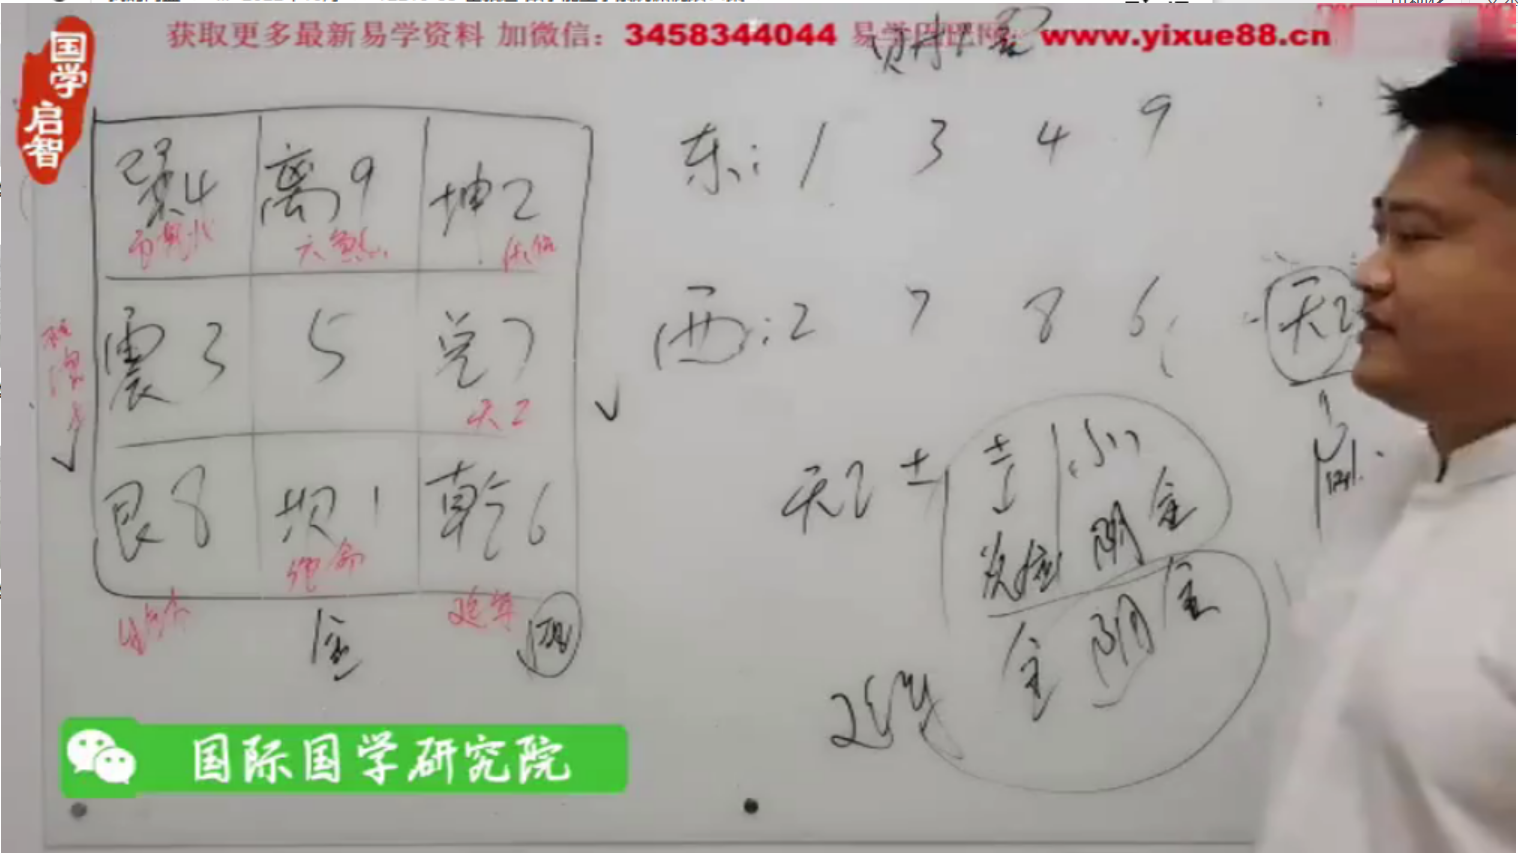 获取更多最新易学资料 加微信：3458344044 易学巴巴网：www.yixue88.cn
国学
启智
巽4 离9 坤2
六煞 伏位
震3 5 兑7
祸害 天乙
艮8 坎1 乾6
绝命
生气 延年
金 阳
东：1 3 4 9
西：2 7 8 6
天乙
天乙土
阴金
延年 金 阴金
国际国学研究院